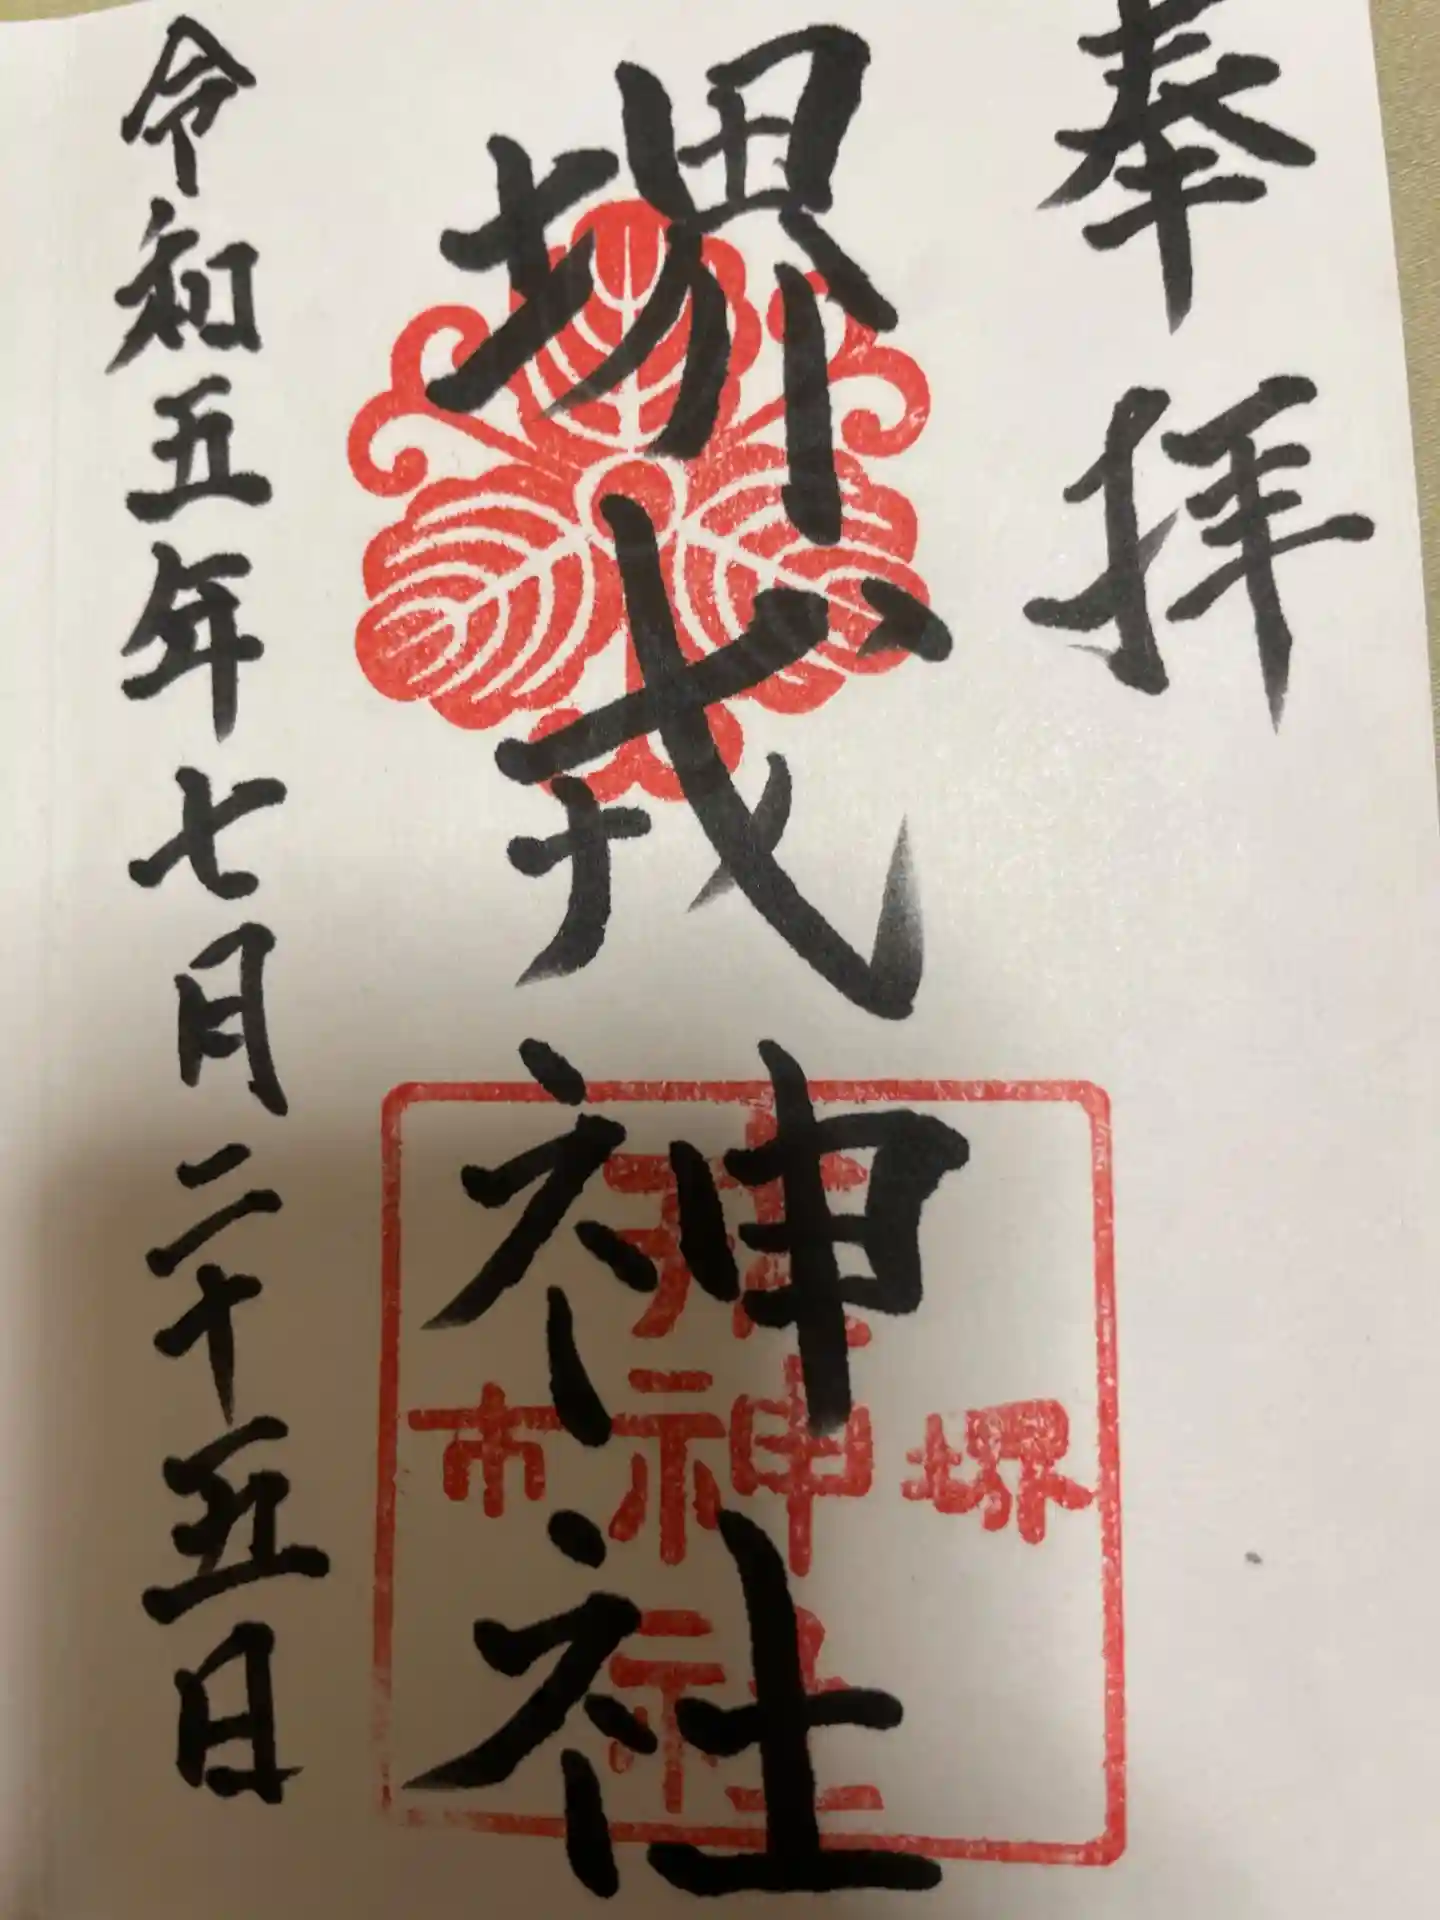 奉拝
堺戎神社
堺市
戎神社
令和五年七月二十五日